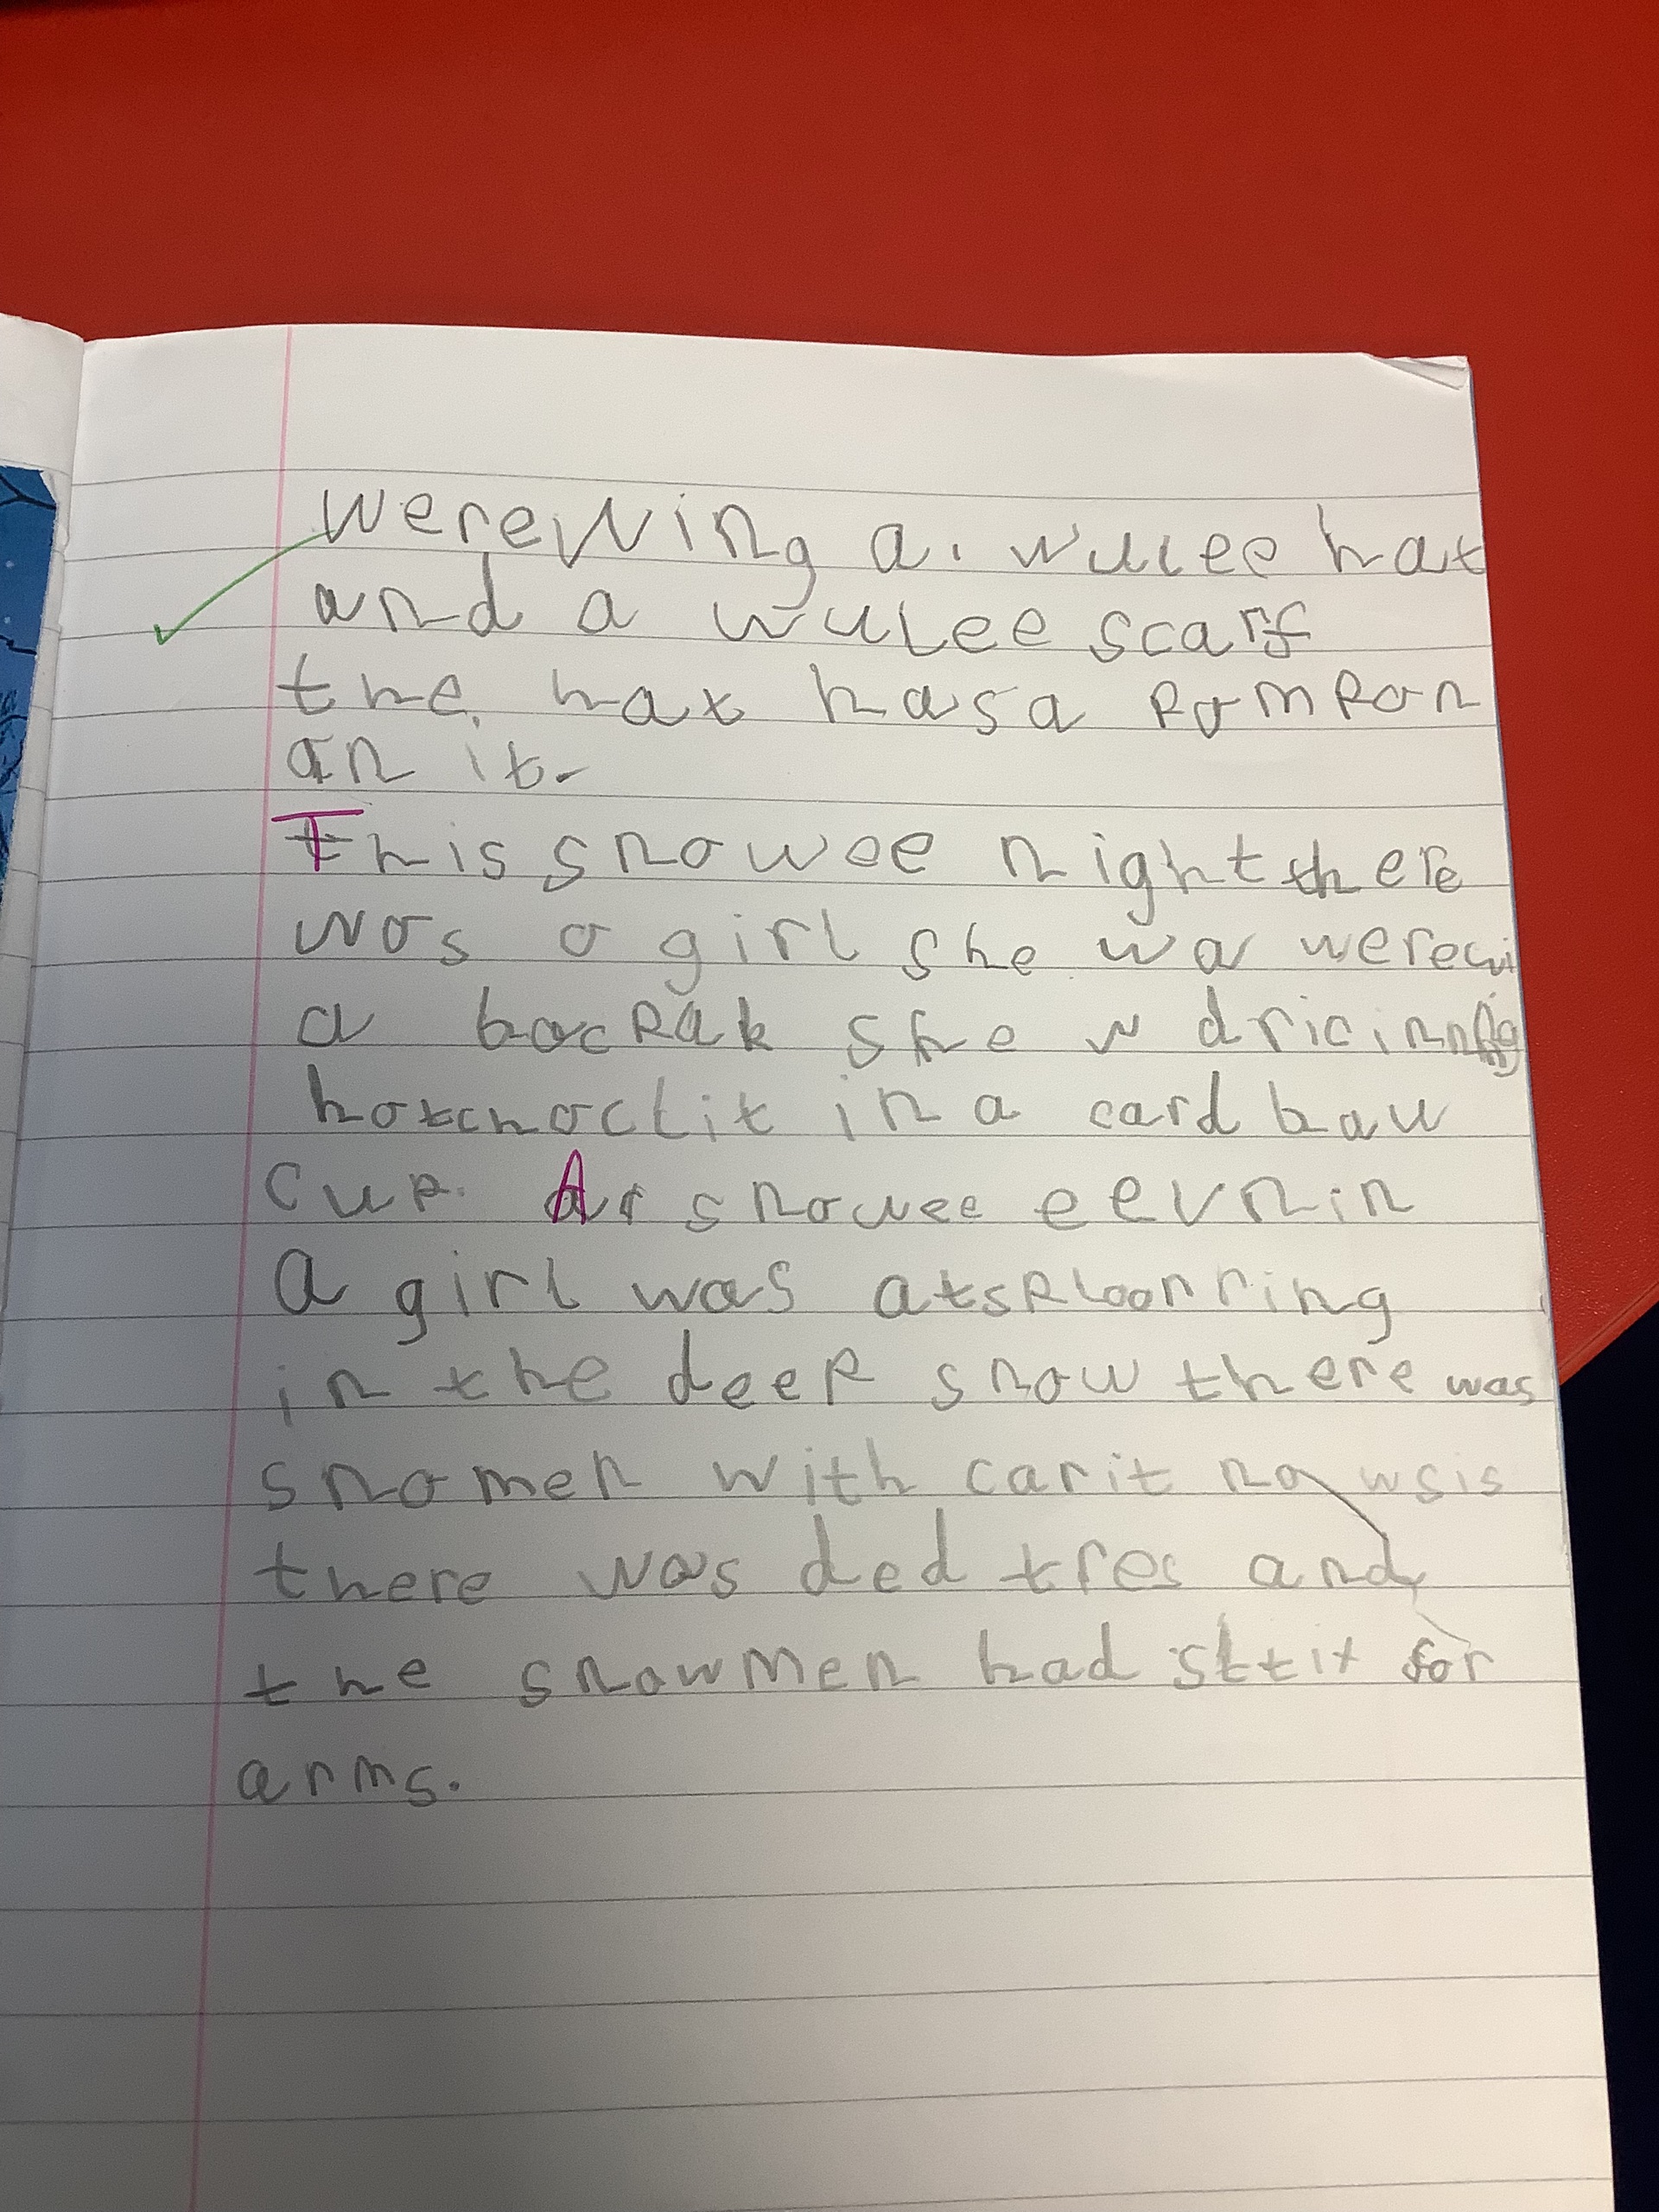 werewing a. wulee hat
and a wulee scarf
the hat has a pompon
on it.
This snowee night there
was a girl she wa werewi
a bacpak she w dricinng
hotchoclit in a card baw
cup. A snowee eevnin
a girl was atsploorring
in the deep snow there was
snomen with carit nowsis
there was ded tres and
the snowmen had for
arms.